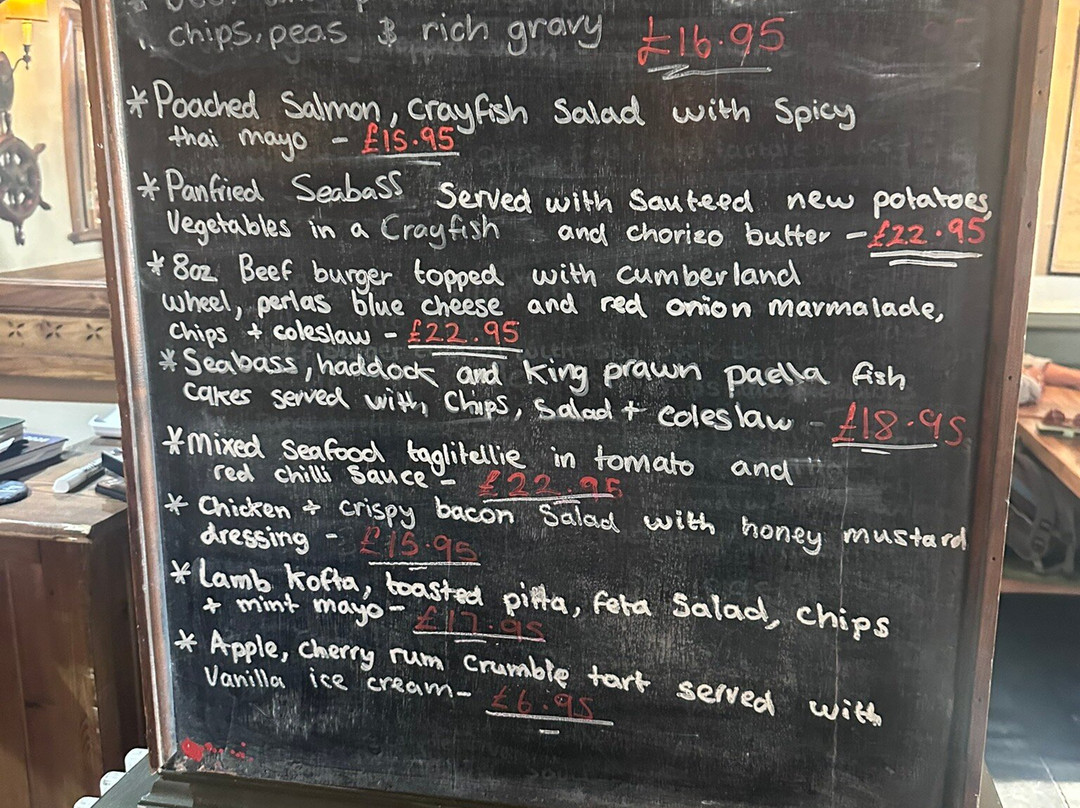 chips, peas & rich gravy £16.95
* Poached Salmon, Crayfish Salad with Spicy
thai mayo - £15.95
* Panfried Seabass Served with Sauteed new potatoes,
Vegetables in a Crayfish and chorizo butter - £22.95
* 8oz Beef burger topped with cumberland
wheel, perlas blue cheese and red onion marmalade,
Chips + coleslaw - £22.95
* Seabass, haddock and King prawn paella fish
cakes served with, Chips, Salad + coleslaw - £18.95
* Mixed Seafood taglitellie in tomato and
red chilli Sauce - £22.95
* Chicken + crispy bacon Salad with honey mustard
dressing - £15.95
* Lamb Kofta, toasted pitta, feta Salad, chips
+ mint mayo - £17.95
* Apple, cherry rum Crumble tart served with
Vanilla ice cream - £6.95